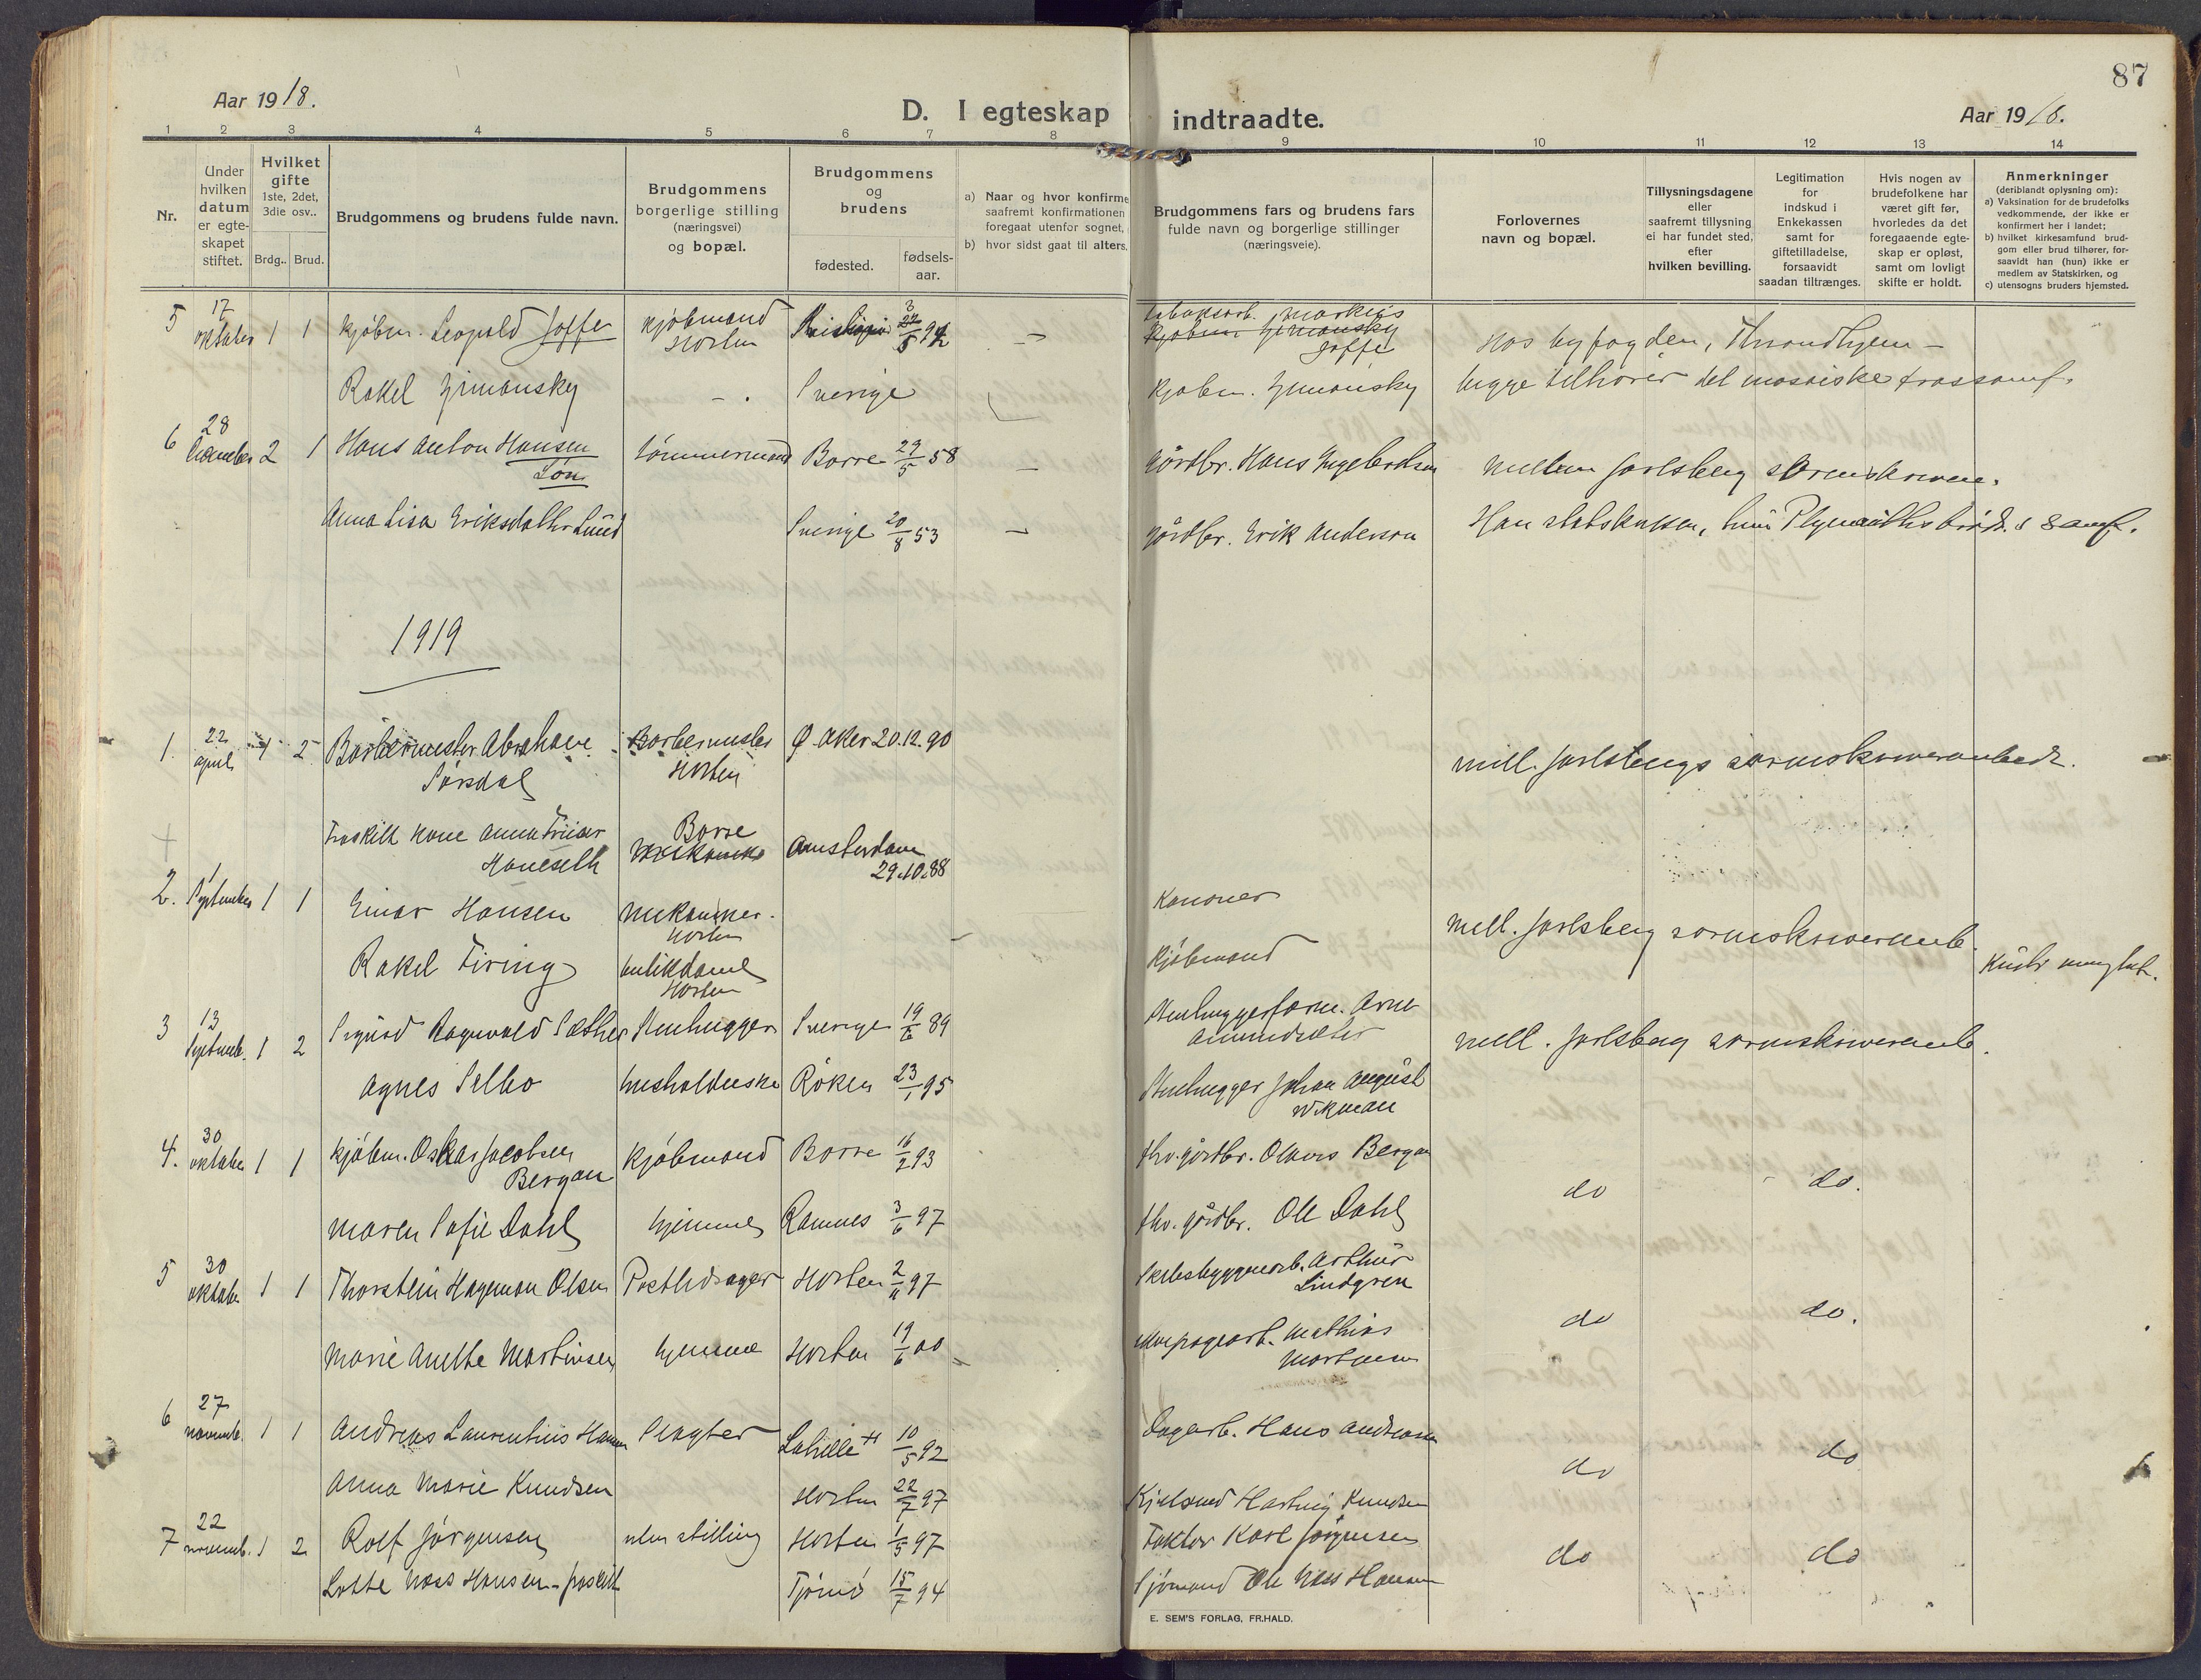 Aar 1918.
D. I egteskap indtraadte.
87
Aar 1918.
1 2 3 4 5 6 7 8 9 10 11 12 13 14
Nr.
Under hvilken datum er egteskapet stiftet.
Hvilket gifte 1ste, 2det, 3die osv..
Brdg.. Brud.
Brudgommens og brudens fulde navn.
Brudgommens borgerlige stilling (næringsvei) og bopæl.
Brudgommens og brudens
fødested.
fødsels-aar.
a) Naar og hvor konfirme
saafremt konfirmationen
foregaat utenfor sognet,
b) hvor sidst gaat til alters.
Brudgommens fars og brudens fars
fulde navn og borgerlige stillinger
(næringsveie).
Forlovernes
navn og bopæl.
Tillysningsdagene
eller
saafremt tillysning
ei har fundet sted,
efter
hvilken bevilling.
Legitimation
for
indskud i
Enkekassen
samt for
giftetilladelse,
forsaavidt
saadan tiltrænges.
Hvis nogen av
brudefolkene har
været gift før,
hvorledes da det
foregaaende egte-
skap er opløst,
samt om lovligt
skifte er holdt.
Anmerkninger
(deriblandt oplysning om):
a) Vaksination for de brudefolks
vedkommende, der ikke er
konfirmert her i landet;
b) hvilket kirkesamfund brud-
gom eller brud tilhører, for-
saavidt han (hun) ikke er
medlem av Statskirken, og
c) utensogns bruders hjemsted.
5 17 oktober 1 1 kjøbm. Leopold Joffe kjøbmand Horten Kristiania 94 Markus Joffe Hos byfogden, Throndhjem
Rakel Jimansky Sverige kjøbm. Jimansky begge tilhører det mosaiske trossamf.
6 28 december 2 1 Hans Anton Hansen Løn tømmermand Borre 29/5 58 gårdbr. Hans Ingebretsen mellem Jarlsberg sorenskriveri.
Anna Lisa Eriksdatter Lund Sverige 20/8 53 gårdbr. Erik Anderson Han statskirken, hun Plymouths brød. s samf.
1919
1. 22 april 1 2 Barbermester Abraham Sørsdal Barbermester Horten Ø. Aker 20.12.90 mell. Jarlsbergs sorenskriverembede.
Fraskilt kone Anna Borre Amsterdam 29.10.88
2. 1 September 1 1 Einar Hansen mekaniker. Horten Kanoner mell. Jarlsberg sorenskriverembe.
Rakel Firing butikdame Horten Kjøbmand
3 13 Septemb. 1 2 Sigurd Ragnvald Sæther Stenhugger Sverige 19/6 89 Stenhuggerform. Arne mell. Jarlsberg sorenskriveremb.
Agnes Selbo husholderske Röken 23/1 95 Stenhugger Johan August Wikman
4. 30 oktober 1 1 kjøbm. Oskar Jacobsen Bergan Kjøbmand Borre 16/2 93 fhv. gårdbr. Olaves Bergan do do.
Maren Sofie Dahl hjemme Ramnes 3/6 97 fhv. gårdbr. Ole Dahl
5 30 oktober 1 1 Thorstein Hageman Olsen Postbudsager Horten 2/11 97 Arthur Lindgren do do.
Marie Anette Martinsen hjemme Horten 19/6 00 Mathias Martinsen
6 27 novemb. 1 1 Andreas Laurentius Hansen Slagter 10/5 92 Dagarb. Hans Andreasen do do
Anna Marie Knudsen Horten 22/7 97 Kjelsmed Hartvig Knudsen
7 22 novemb. 1 2 Rolf Jørgensen uten stilling Horten 1/5 97 Faktor Karl Jørgensen do do
Lotte Næss Hansen - fraskilt Tjømø 15/7 94 Sjømand Ole Næss Hansen
E. SEM'S FORLAG, FR.HALD.